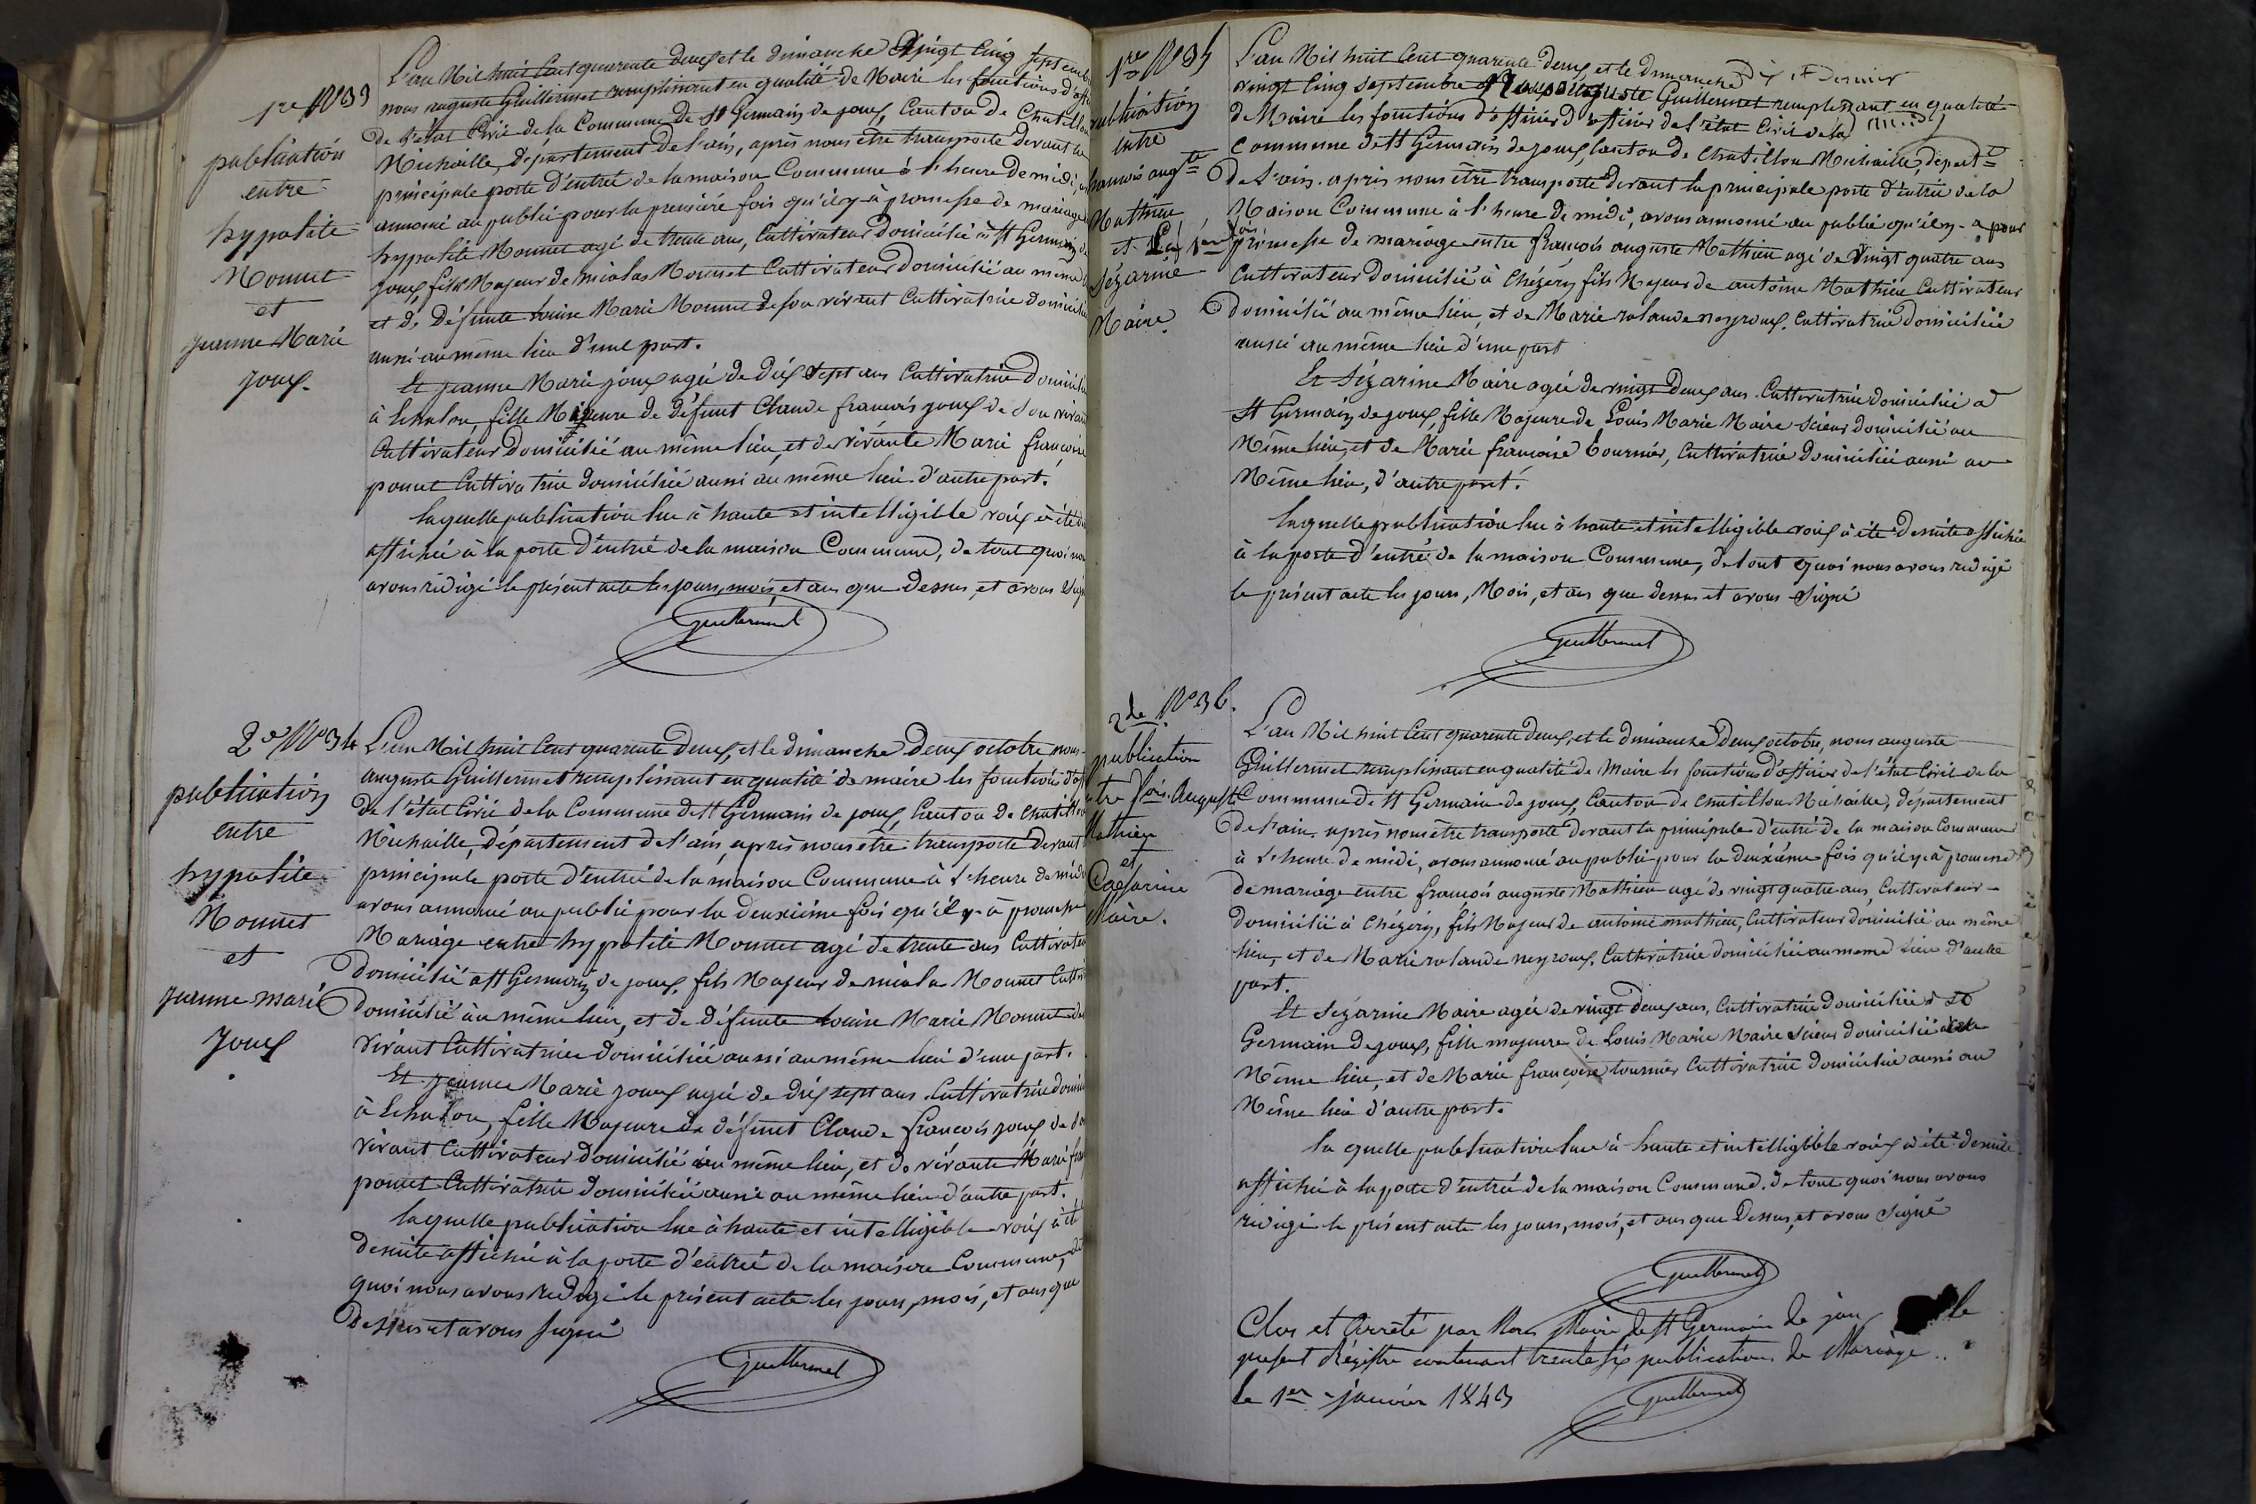 1re N°33
publication
entre
hypolite
Monnet
et
jeanne Marie
joux.
L'an Mil huit Cent quarante deux, et le dimanche Vingt Cinq septembre
nous auguste Guillermet remplissant en qualité de Maire les fonctions d'off
de l'état Civil de la Commune de St Germain de joux, Canton de Chatillon
Michaille, département de l'ain, après nous être transporté devant la
principale porte d'entrée de la maison Commune à l'heure de midi, a
annoncé au public pour la première fois qu'il y a promesse de mariage
hypolite Monnet agé de trente ans, Cultivateur domicilié à St Germain de
joux, fils Majeur de nicolas Monnet Cultivateur domicilié au même
et de Défunte louise Marie Monnet de son vivant Cultivatrice domiciliée
aussi au même lieu d'une part.
Et jeanne Marie joux agée de dix sept ans Cultivatrice domiciliée
à Echalon, fille Mineure de défunt Claude françois joux de Son vivant
Cultivateur domicilié au même lieu, et de vivante Marie françoise
ponnet Cultivatrice domiciliée aussi au même lieu d'autre part.
laquelle publication lue à haute et intelligible voix a été de
affichée à la porte d'entrée de la maison Commune, de tout quoi nous
avons rédigé le présent acte les jours, mois, et ans que dessus, et avons signé
Guillermet
2e N°34
publication
entre
hypolite
Monnet
et
jeanne marie
Joux
L'an Mil huit Cent quarante deux, et le dimanche deux octobre nous
auguste Guillermet remplissant en qualité de maire les fonctions d'off
de l'état Civil de la Commune de St Germain de joux, Canton de Chatillon
Michaille, département de l'ain, après nous être transporté devant
principale porte d'entrée de la maison Commune à l'heure de midi
avons annoncé au public pour la deuxième fois qu'il y a promesse
Mariage entre hypolite Monnet agé de trente ans Cultivateur
domicilié à St Germain de joux, fils Majeur de nicolas Monnet Cultiv
domicilié au même lieu, et de défunte louise Marie Monnet de
vivant Cultivatrice domiciliée aussi au même lieu d'une part.
Et jeanne Marie joux agée de dix sept ans Cultivatrice domici
à Echalon, fille Majeure de défunt Claude françois joux de So
vivant Cultivateur domicilié au même lieu, et de vivante Marie fran
ponnet Cultivatrice domiciliée aussi au même lieu d'autre part.
laquelle publication lue à haute et intelligible voix a été
de suite affichée à la porte d'entrée de la maison Commune, de
quoi nous avons rédigé le présent acte les jours, mois, et ans que
Dessus et avons signé
Guillermet
1re N°35
publication
entre
francois augte
Mathieu
et
Sézarine
Maire.
L'an Mil huit Cent quarante deux, et le dimanche
vingt Cinq septembre Nous auguste Guillermet remplissant en qualité
de Maire les fonctions d'officier d'officier de l'état Civil de la
Commune de St Germain de joux, Canton de Chatillon Michaille, départt
de l'ain. après nous être transporté devant la principale porte d'entrée de la
Maison Commune à l'heure de midi, avons annoncé au public qu'il y a pour
La 1ere fois promesse de mariage entre françois auguste Mathieu agé de Vingt quatre ans
Cultivateur domicilié à Chézery, fils Majeur de antoine Mathieu Cultivateur
domicilié au même lieu, et de Marie rolande neyroux, Cultivatrice domiciliée
aussi au même lieu d'une part
Et Sézarine Maire agée de vingt Deux ans. Cultivatrice domiciliée à
St Germain de joux, fille Majeure de Louis Marie Maire scieur domicilié au
Même lieu, et de Marie françoise tournier, Cultivatrice domiciliée aussi au
Même lieu, d'autre part.
laquelle publication lue à haute et intelligible voix a été de suite affichée
à la porte d'entrée de la maison Commune, de tout quoi nous avons rédigé
le présent acte les jours, Mois, et ans que dessus et avons signé
Guillermet
2de N°36.
publication
entre fois. Auguste
Mathieu
et
Caesarine
Maire.
L'an Mil huit Cent quarante deux, et le dimanche deux octobre, nous auguste
Guillermet remplissant en qualité de Maire les fonctions d'officier de l'état Civil de la
Commune de St Germain de joux, Canton de Chatillon Michaille, département
de l'ain, après nous être transporté devant la principale d'entrée de la maison Commune
à l'heure de midi, avons annoncé au public pour la deuxième fois qu'il y a promesse
de mariage entre françois auguste Mathieu agé de vingt quatre ans, Cultivateur
domicilié à Chézery, fils Majeur de antoine mathieu, Cultivateur domicilié au même
lieu, et de Marie rolande neyroux, Cultivatrice domiciliée au meme lieu d'autre
part.
Et Sézarine Maire agée de vingt deux ans, Cultivatrice domiciliée à St
Germain de joux, fille majeure de Louis Marie Maire Scieur domicilié
Même lieu, et de Marie françoise tournier Cultivatrice domiciliée aussi au
Même lieu d'autre part.
la quelle publication lue à haute et intelligible voix a été de suite
affichée à la porte d'entrée de la maison Commune. De tout quoi nous avons
rédigé le présent acte les jours, mois, et ans que Dessus, et avons signé
Guillermet
Clos et Arrêté par Nous Maire de St Germain de joux le
présent Régistre contenant trente six publications de Mariage..
le 1er janvier 1843
Guillermet